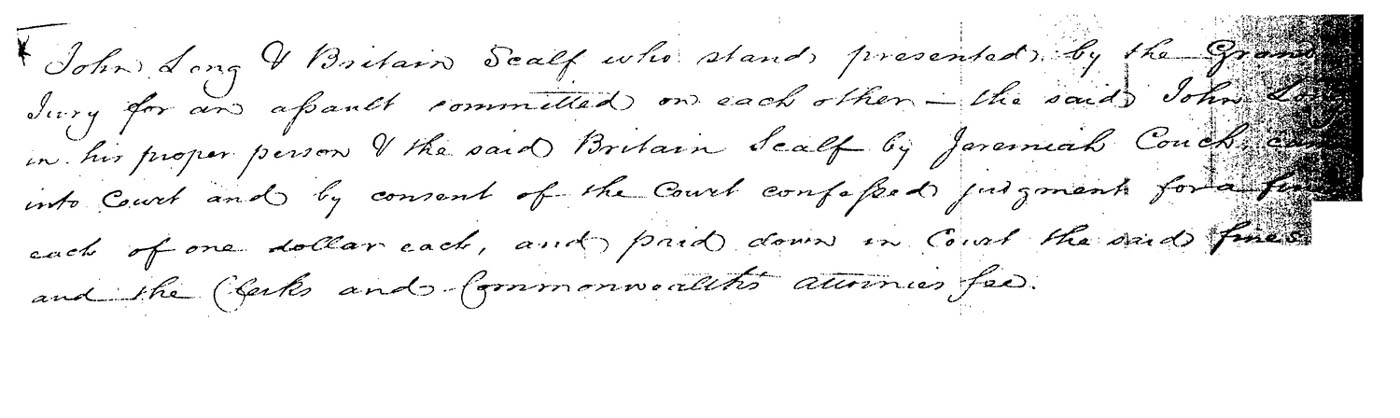 John Long & Britain Scalf who stand presented by the Grand
Jury for an assault committed on each other — the said John Long
in his proper person & the said Britain Scalf by Jeremiah Couch came
into Court and by consent of the Court confessed judgment for a fine
each of one dollar each, and paid down in Court the said fines
and the Clerks and Commonwealth's attornies fee.